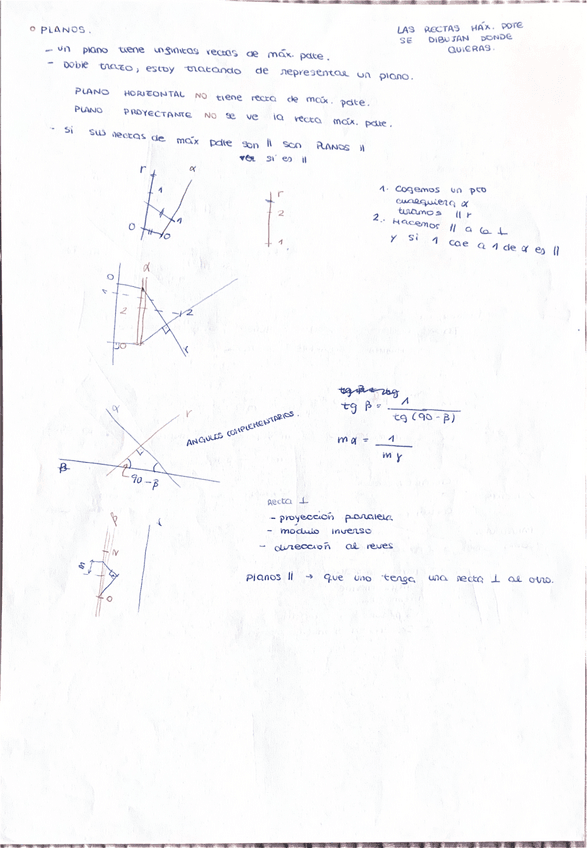 PLANOS.
LAS RECTAS MÁX. PDTE
SE DIBUJAN DONDE
QUIERAS.
- un plano tiene infinitas rectas de máx. pdte.
- Doble trazo, estoy tratando de representar un plano.
PLANO HORIZONTAL NO tiene recta de máx. pdte.
PLANO PROYECTANTE NO se ve la recta máx. pdte.
- Si sus rectas de máx pdte son || son PLANOS ||
si es ||
r
α
1
1
0
0
r
2
1
1. Cogemos un pto
cualquiera α
tiramos || r
2. Hacemos || a la ⊥
y si 1 cae a 1 de α es ||
α
0
2
2
r
α
r
ANGULOS COMPLEMENTARIOS.
β
90 - β
tg β = 1 / tg (90 - β)
mα = 1 / mγ
recta ⊥
- proyección paralela
- módulo inverso
- dirección al reves
β
r
N
0
PLANOS || → que uno tenga una recta ⊥ al otro.